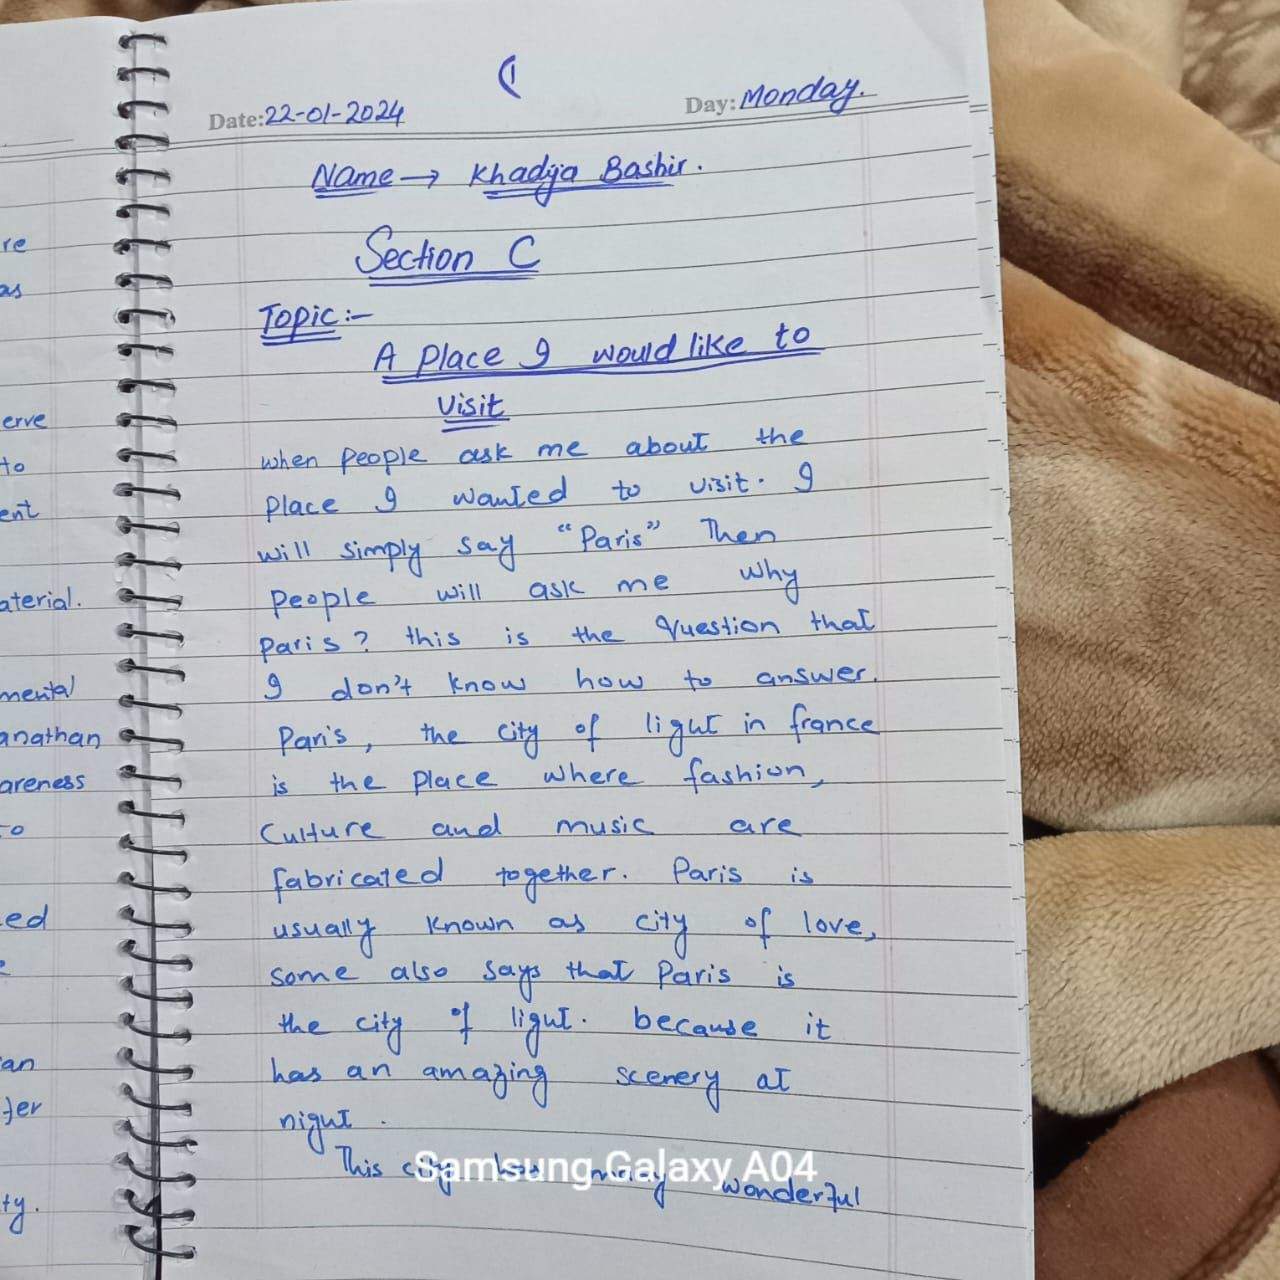 re
as
erve
to
ent
aterial.
mental
anathan
areness
to
ed
an
ty.
Date: 22-01-2024
Day: Monday.
Name → Khadija Bashir.
Section C
Topic:-
A Place I would like to
Visit
when people ask me about the
place I wanted to visit. I
will simply say “Paris” Then
people will ask me why
Paris? this is the Question that
I don't know how to answer.
Paris, the city of light in france
is the place where fashion,
Culture and music are
fabricated together. Paris is
usually known as city of love,
some also says that Paris is
the city of light. because it
has an amazing scenery at
night.
This city has many wonderful
Samsung Galaxy A04